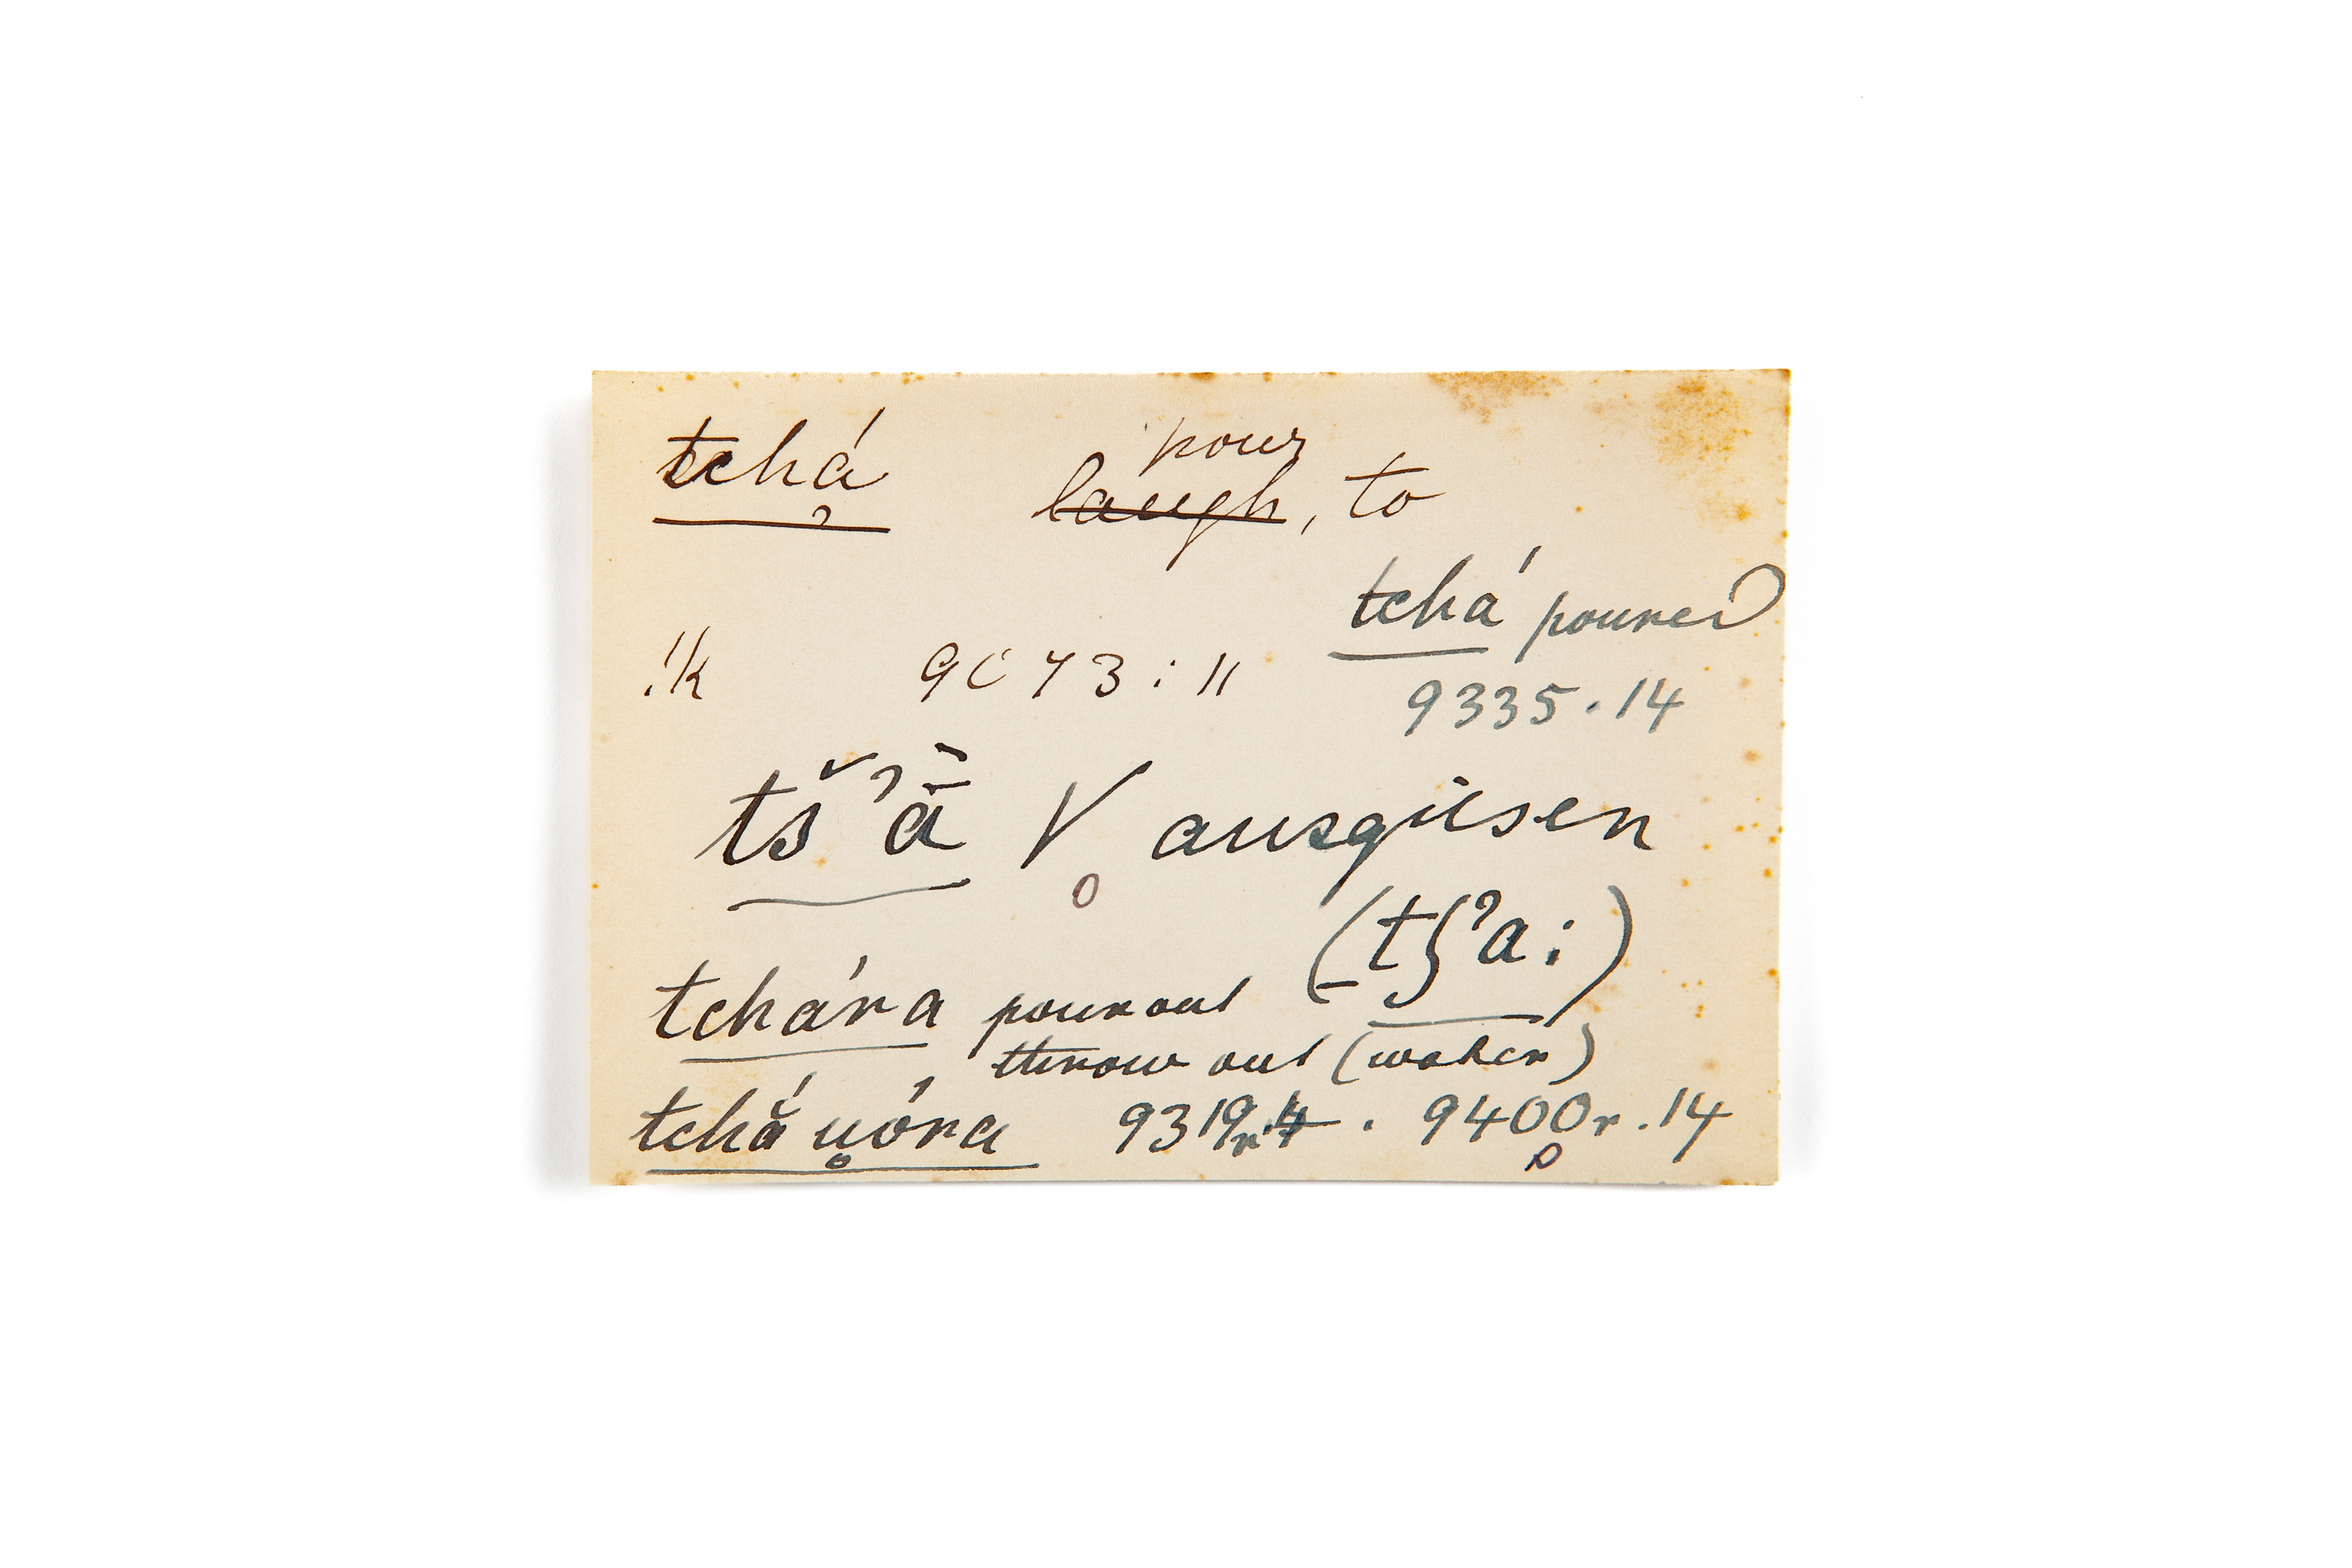 tchá̜ pour
laugh, to
tchá poured
!k 9073 : 11
9335 . 14
tš ʾā̀ V ausgiisen
(tʃˀa:)
tchára pour out
throw out (water)
tchắ u̯óra 9319r.4 . 9400r . 14